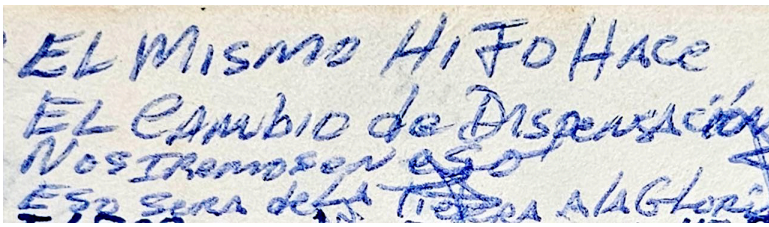 EL MISMO HIJO HACE
EL CAMbIO de DISPENSACIÓN
NOS IREMOS EN eso
ESO SERA de LA TIERRA A LA GLORIA